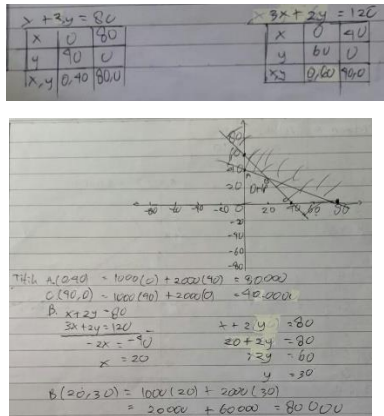 x + 2y = 80
x 0 80
y 40 0
x,y 0,40 80,0
3x + 2y = 120
x 0 40
y 60 0
x,y 0,60 40,0
80
60
40
20
-80 -60 -40 -20 20 40 60 80
-20
-40
-60
-80
A(0,40) = 1000(0) + 2000(40) = 80000
C(40,0) = 1000(40) + 2000(0) = 40.000
B. x+2y = 80
3x+2y = 120 -
-2x = -40
x = 20
x + 2y = 80
20 + 2y = 80
2y = 60
y = 30
B(20,30) = 1000(20) + 2000(30)
= 20000 + 60000 = 80000